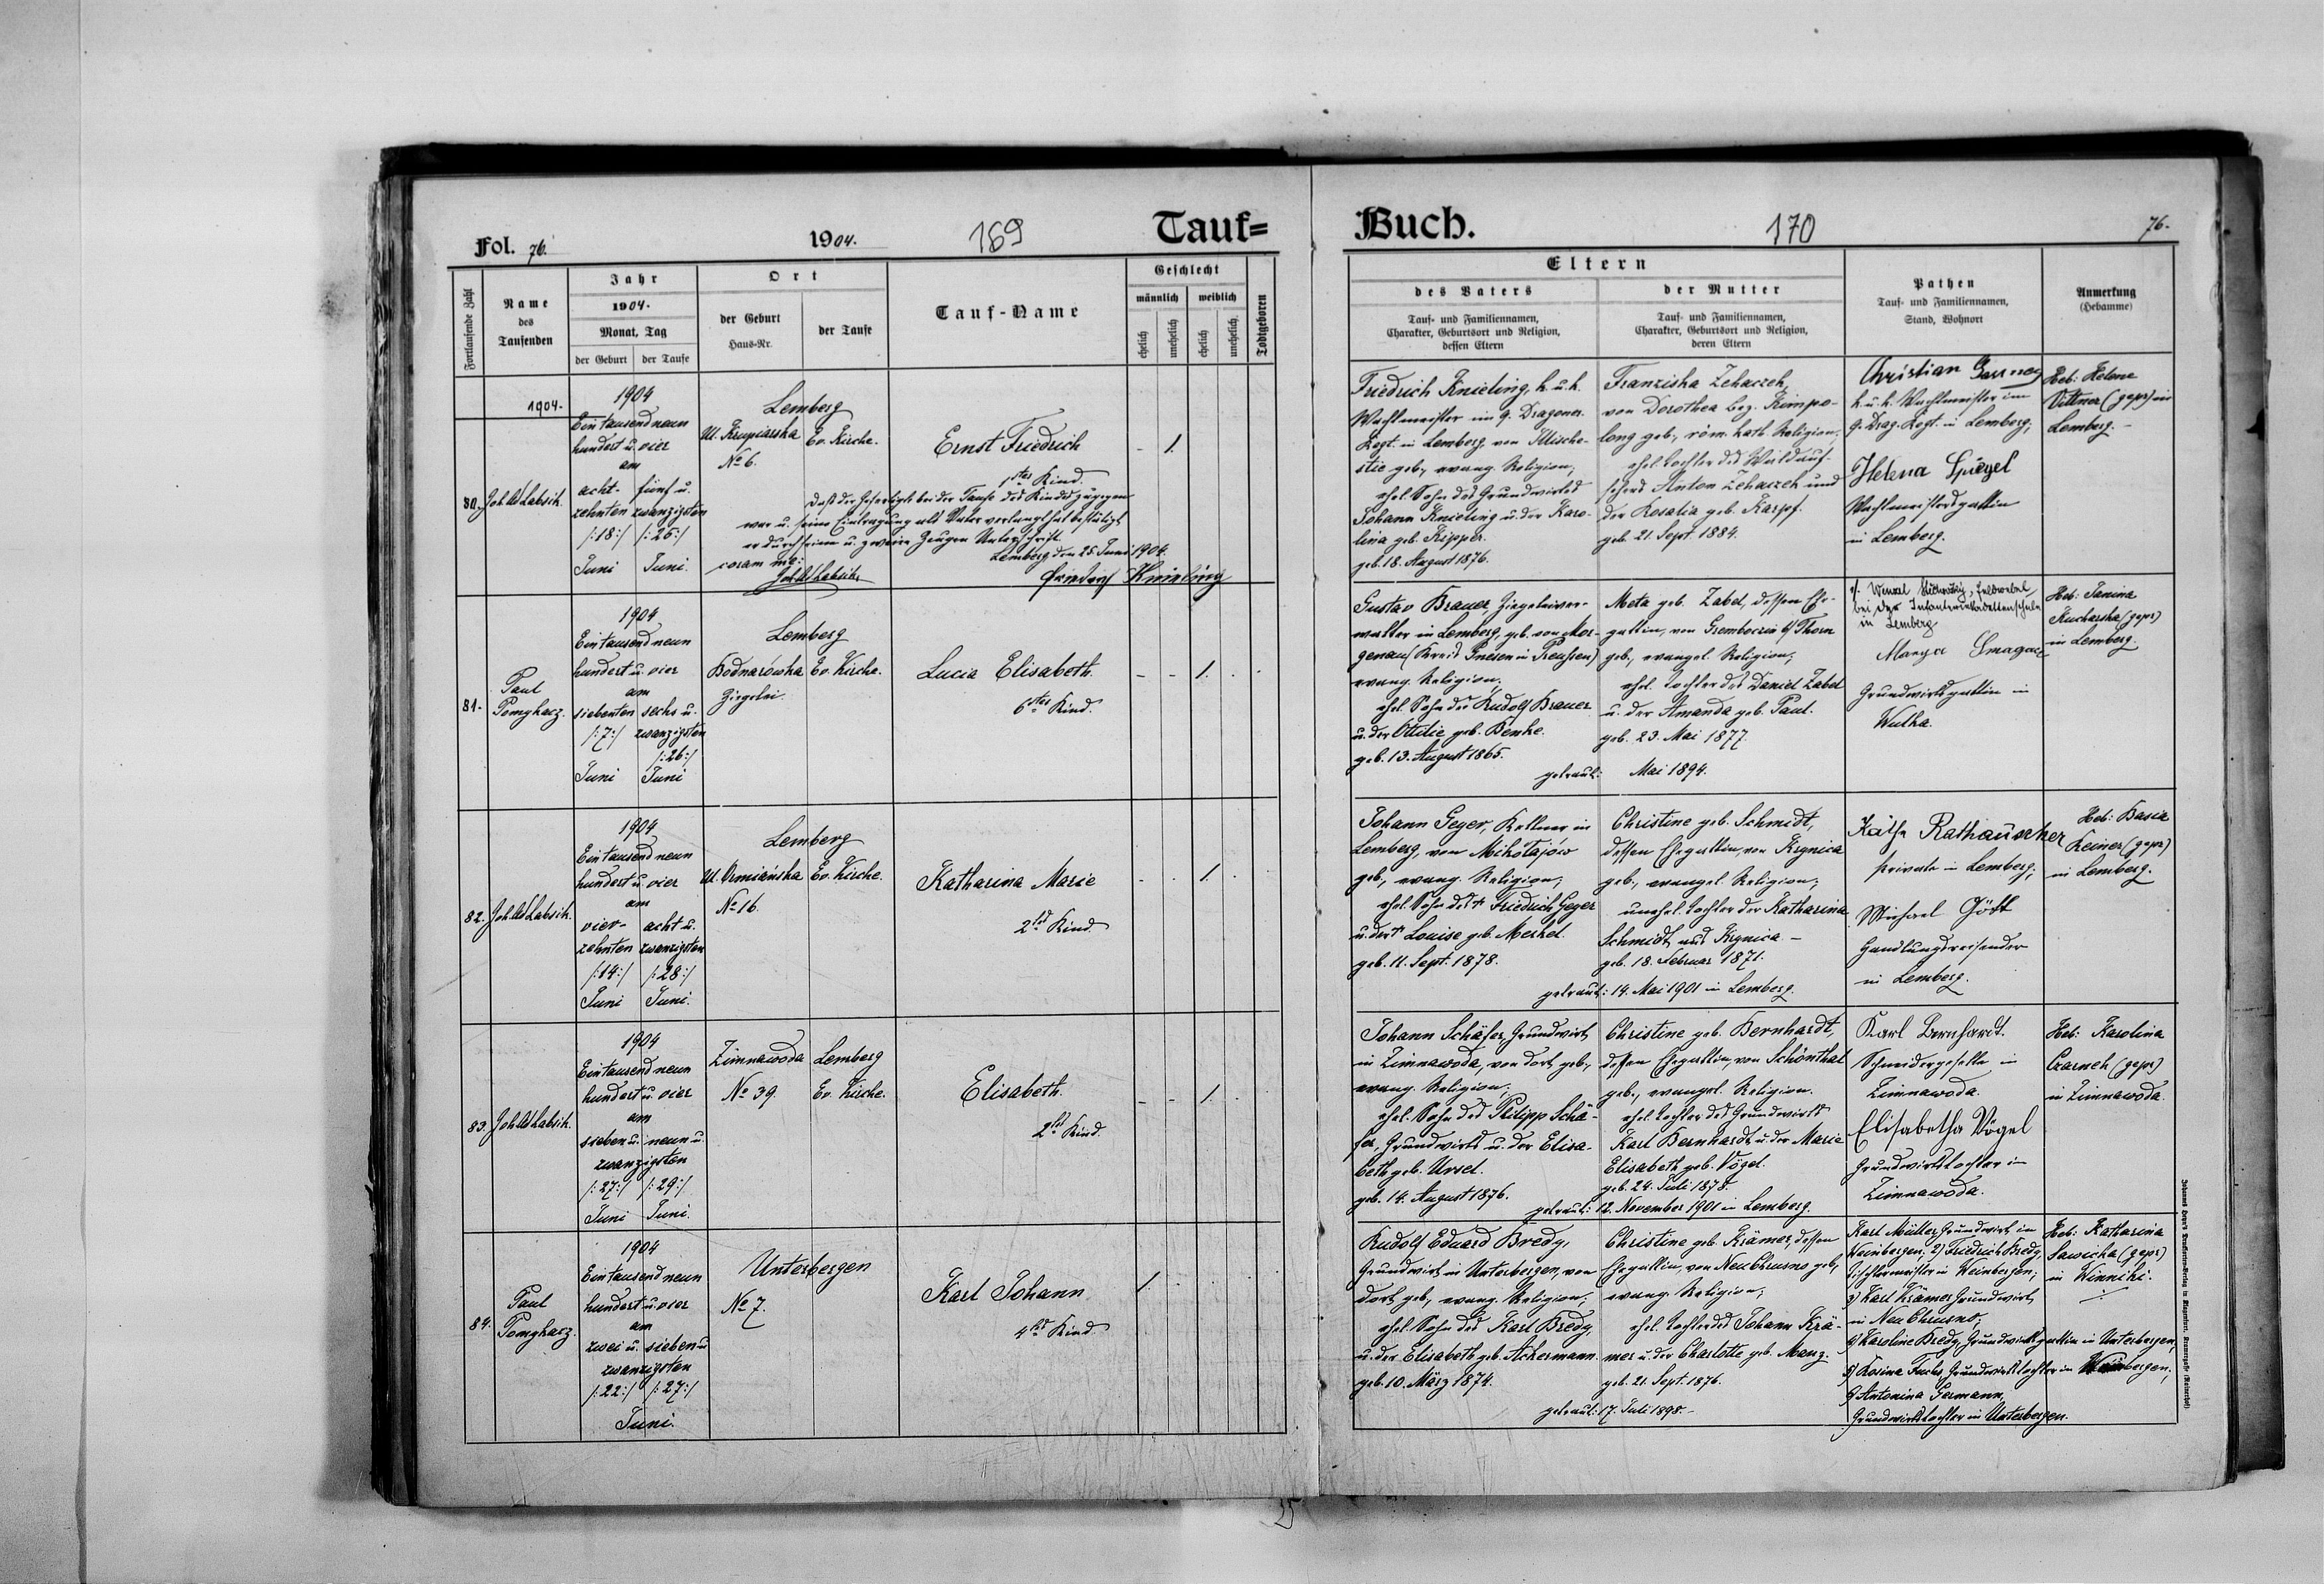 Fol. 76. 1904. 169 Tauf=
Fortlaufende Zahl
Name
des
Taufenden
Jahr
1904.
Monat, Tag
der Geburt der Taufe
Ort
der Geburt
Haus-Nr.
der Taufe
Tauf-Name
Geschlecht
männlich weiblich
ehelich unehelich ehelich unehelich
Todtgeboren
1904.
80. Joh. Labsik.
1904
Ein tausend neun
hundert u. vier
am
acht- fünf u.
zehnten zwanzigsten
/:18:/ /:25:/
Juni Juni.
Lemberg
Ul. Krupiarska Ev. Kirche.
No 6.
Ernst Friedrich - 1.
1tes Kind.
Daß der Gefertigte bei der Taufe des Kindes zugegen
war u. seine Eintragung als Vater verlangt hat bestätigt
er durch seine u. zweier Zeugen Unterschrift.
Lemberg den 25. Juni 1904.
coram me:
Friedrich Knieling
81. Paul
Pomykacz.
1904
Ein tausend neun
hundert u. vier
am
siebenten sechs u.
/:7:/ zwanzigsten
/:26:/
Juni Juni
Lemberg
Bodnarówka Ev. Kirche.
Ziegelei
Lucia Elisabeth. - - 1. .
6tes Kind.
82. Joh. Labsik.
1904
Ein tausend neun
hundert u. vier
am
vier- acht u.
zehnten zwanzigsten
/:14:/ /:28:/
Juni Juni.
Lemberg
Ul. Ormiańska Ev. Kirche.
No 16.
Katharina Marie . . 1. .
2tes Kind
83. Joh. Labsik.
1904
Ein tausend neun
hundert u. vier
am
sieben u. neun u.
zwanzigsten
/:27:/ /:29:/
Juni Juni.
Zimnawoda Lemberg
No 39. Ev. Kirche.
Elisabeth. - - 1.
2tes Kind.
84. Paul
Pomykacz.
1904
Ein tausend neun
hundert u. vier
am
zwei u. sieben u.
zwanzigsten
/:22:/ /:27:/
Juni.
Unterbergen
No 7.
Karl Johann 1.
4tes Kind.
Buch. 170 76.
Eltern
des Vaters
Tauf- und Familiennamen,
Charakter, Geburtsort und Religion,
dessen Eltern
der Mutter
Tauf- und Familiennamen,
Charakter, Geburtsort und Religion,
deren Eltern
Pathen
Tauf- und Familiennamen,
Stand, Wohnort
Anmerkung
(Hebamme)
Friedrich Knieling, k. u. k.
Wachtmeister im 9. Dragoner-
Regt. in Lemberg von Illische-
stie geb., evang. Religion;
ehel. Sohn des Grundwirtes
Johann Knieling u. der Karo-
lina geb. Kipper.
geb. 18. August 1876.
Franziska Zehaczek,
von Dorothea Bez. Kimpo-
long geb., röm. kath. Religion;
ehel. Tochter des Waldauf-
sehers Anton Zehaczek und
der Rosalia geb. Karpf.
geb. 21. Sept. 1884.
Christian
k. u. k. Wachtmeister im
9. Drag. Regt. in Lemberg;
Helena Spiegel
Wachtmeistersgattin
in Lemberg.
Heb: Helene
Vittner (gepr) in
Lemberg.-
Gustav Brauer, Ziegeleiver-
walter in Lemberg, geb. von Mor-
genau (Kreis Gnesen in Preußen)
evang. Religion;
ehel. Sohn des Rudolf Brauer
u. der Ottilie geb. Benke.
geb. 13. August 1865.
Meta geb. Zabel, dessen Ehe-
gattin, von Gremboczin b/ Thorn
geb., evangel. Religion;
ehel. Tochter des Daniel Zabel
u. der Amanda geb. Paul.
geb. 23. Mai 1877.
getraut: Mai 1894.
Wenzel, Feldwebel
bei der Infanteriekadettenschule
in Lemberg
Marya Smagacz
Grundwirtsgattin in
Wulka.
Heb: Janina
Kucharska (gepr)
in Lemberg.
Johann Geyer, Kellner in
Lemberg, von Mikołajów
geb., evang. Religion;
ehel. Sohn des + Friedrich Geyer
u. der + Louise geb. Merkel.
geb. 11. Sept. 1878.
Christine geb. Schmidt,
dessen Ehegattin, von Krynica
geb., evangel. Religion;
unehel. Tochter der Katharina
Schmidt aus Krynica.-
geb. 18. Februar 1871.
getraut: 14. Mai 1901 in Lemberg.
Käthe Rathauscher
Private in Lemberg;
Michael Gött
Handlungsreisender
in Lemberg.
Heb: Basie
Keiner (gepr)
in Lemberg.
Johann Schäfer, Grundwirt
in Zimnawoda, von dort geb.,
evang. Religion;
ehel. Sohn des Philipp Schä-
fer, Grundwirts u. der Elisa-
beth geb. Ursel.
geb. 14. August 1876.
Christine geb. Bernhardt,
dessen Ehegattin, von Schönthal
geb., evangel. Religion.
ehel. Tochter des Grundwirts
Karl Bernhardt u. der Marie
Elisabeth geb. Vögel.
geb. 24. Juli 1878.
getraut: 12. November 1901 in Lemberg.
Karl Bernhardt.
Schneidergeselle in
Zimnawoda.
Elisabetha Vögel
Grundwirtstochter in
Zimnawoda.
Heb: Karolina
Czarnek (gepr)
in Zimnawoda.
Rudolf Eduard Bredy,
Grundwirt in Unterbergen, von
dort geb., evang. Religion;
ehel. Sohn des Karl Bredy,
u. der Elisabeth geb. Ackermann.
geb. 10. März 1874.
Christine geb. Krämer, dessen
Ehegattin, von Neu Chrusno geb.,
evang. Religion;
ehel. Tochter des Johann Krä-
mer u. der Charlotte geb. Manz.
geb. 21. Sept. 1876.
getraut: 17. Juli 1898.-
Karl Müller, Grundwirt in
Weinbergen; 2) Friedrich Bredy,
Tischlermeister in Weinbergen;
3) Karl Krämer Grundwirt
in Neu Chrusno;
4) Karoline Bredy, Grundwirtsgattin in Unterbergen;
5) Rosina Fuchs, Grundwirtstochter in Weinbergen;
6) Antonina Germann,
Grundwirtstochter in Unterbergen.
Heb: Katharina
Sawicka (gepr)
in Winniki.